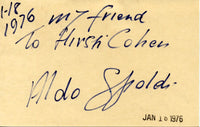 1-18
1976 my friend
To Hirsh Cohen
Aldo
JAN 18 1976